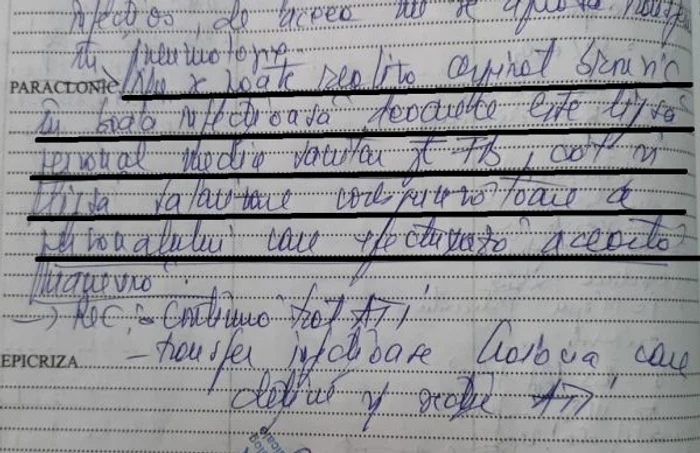 infectios, de aceea nu se aprobă transfer
în pneumologie.
PARACLINIC Nu se poate realiza aspirat bronșic
în boala infecțioasă deoarece este lipsă
personal mediu sanitar și TB, cât și
lipsa salarizare corespunzătoare a
personalului care efectuează această
manevră.
→ REC: - Continuă trat ATI
EPICRIZA - transfer infecțioase Craiova, care
deține și secție ATI